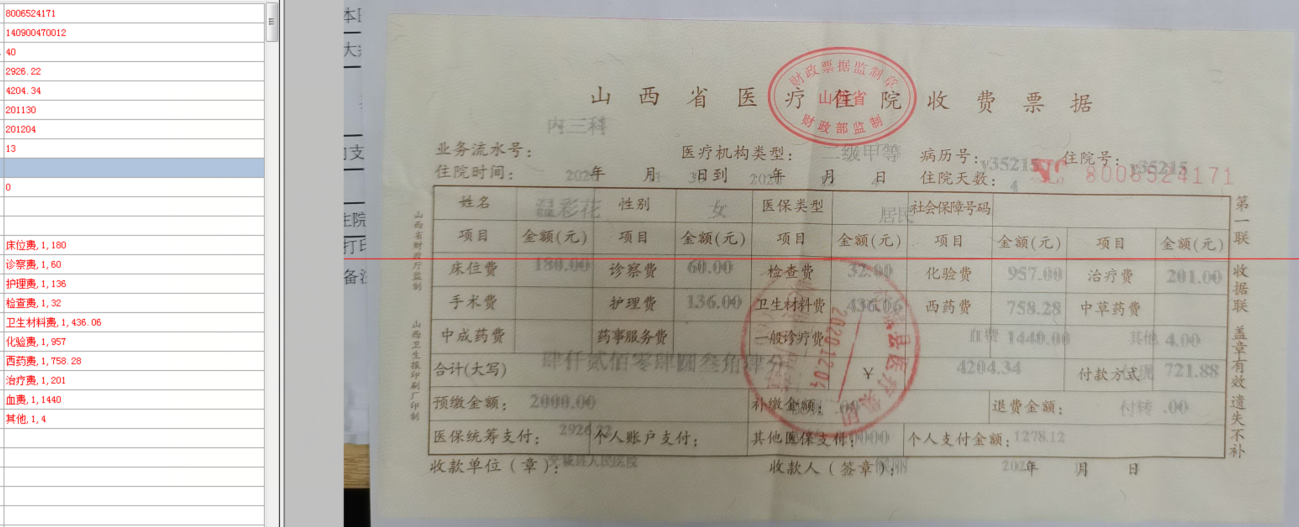 8006524171
140900470012
40
2926.22
4204.34
201130
201204
13
0
床位费,1,180
诊察费,1,60
护理费,1,136
检查费,1,32
卫生材料费,1,436.06
化验费,1,957
西药费,1,758.28
治疗费,1,201
血费,1,1440
其他,1,4
山西省医疗住院收费票据
财政票据监制章
山西省
财政部监制
内三科
业务流水号: 医疗机构类型: 二级甲等 病历号:y35215 住院号: y35215
住院时间: 年 月 日到 年 月 日 住院天数: 4 8006524171
姓名 温彩花 性别 女 医保类型 居民 社会保障号码
项目 金额(元) 项目 金额(元) 项目 金额(元) 项目 金额(元) 项目 金额(元)
床位费 180.00 诊察费 60.00 检查费 32.00 化验费 957.00 治疗费 201.00
手术费 护理费 136.00 卫生材料费 436.06 西药费 758.28 中草药费
中成药费 药事服务费 一般诊疗费 血费 1440.00 其他 4.00
合计(大写) 肆仟贰佰零肆圆叁角肆分 ¥ 4204.34 付款方式 721.88
预缴金额: 2000.00 补缴金额: .00 退费金额: 付转 .00
医保统筹支付: 2926.22 个人账户支付: 其他医保支付: 个人支付金额: 1278.12
收款单位(章): 人民医院 收款人(签章): 年 月 日
第一联 收据联 盖章有效 遗失不补
山西省财政厅监制
山西卫生报印刷厂印制
2020.12.04
本
大
支
住院
打印
备注